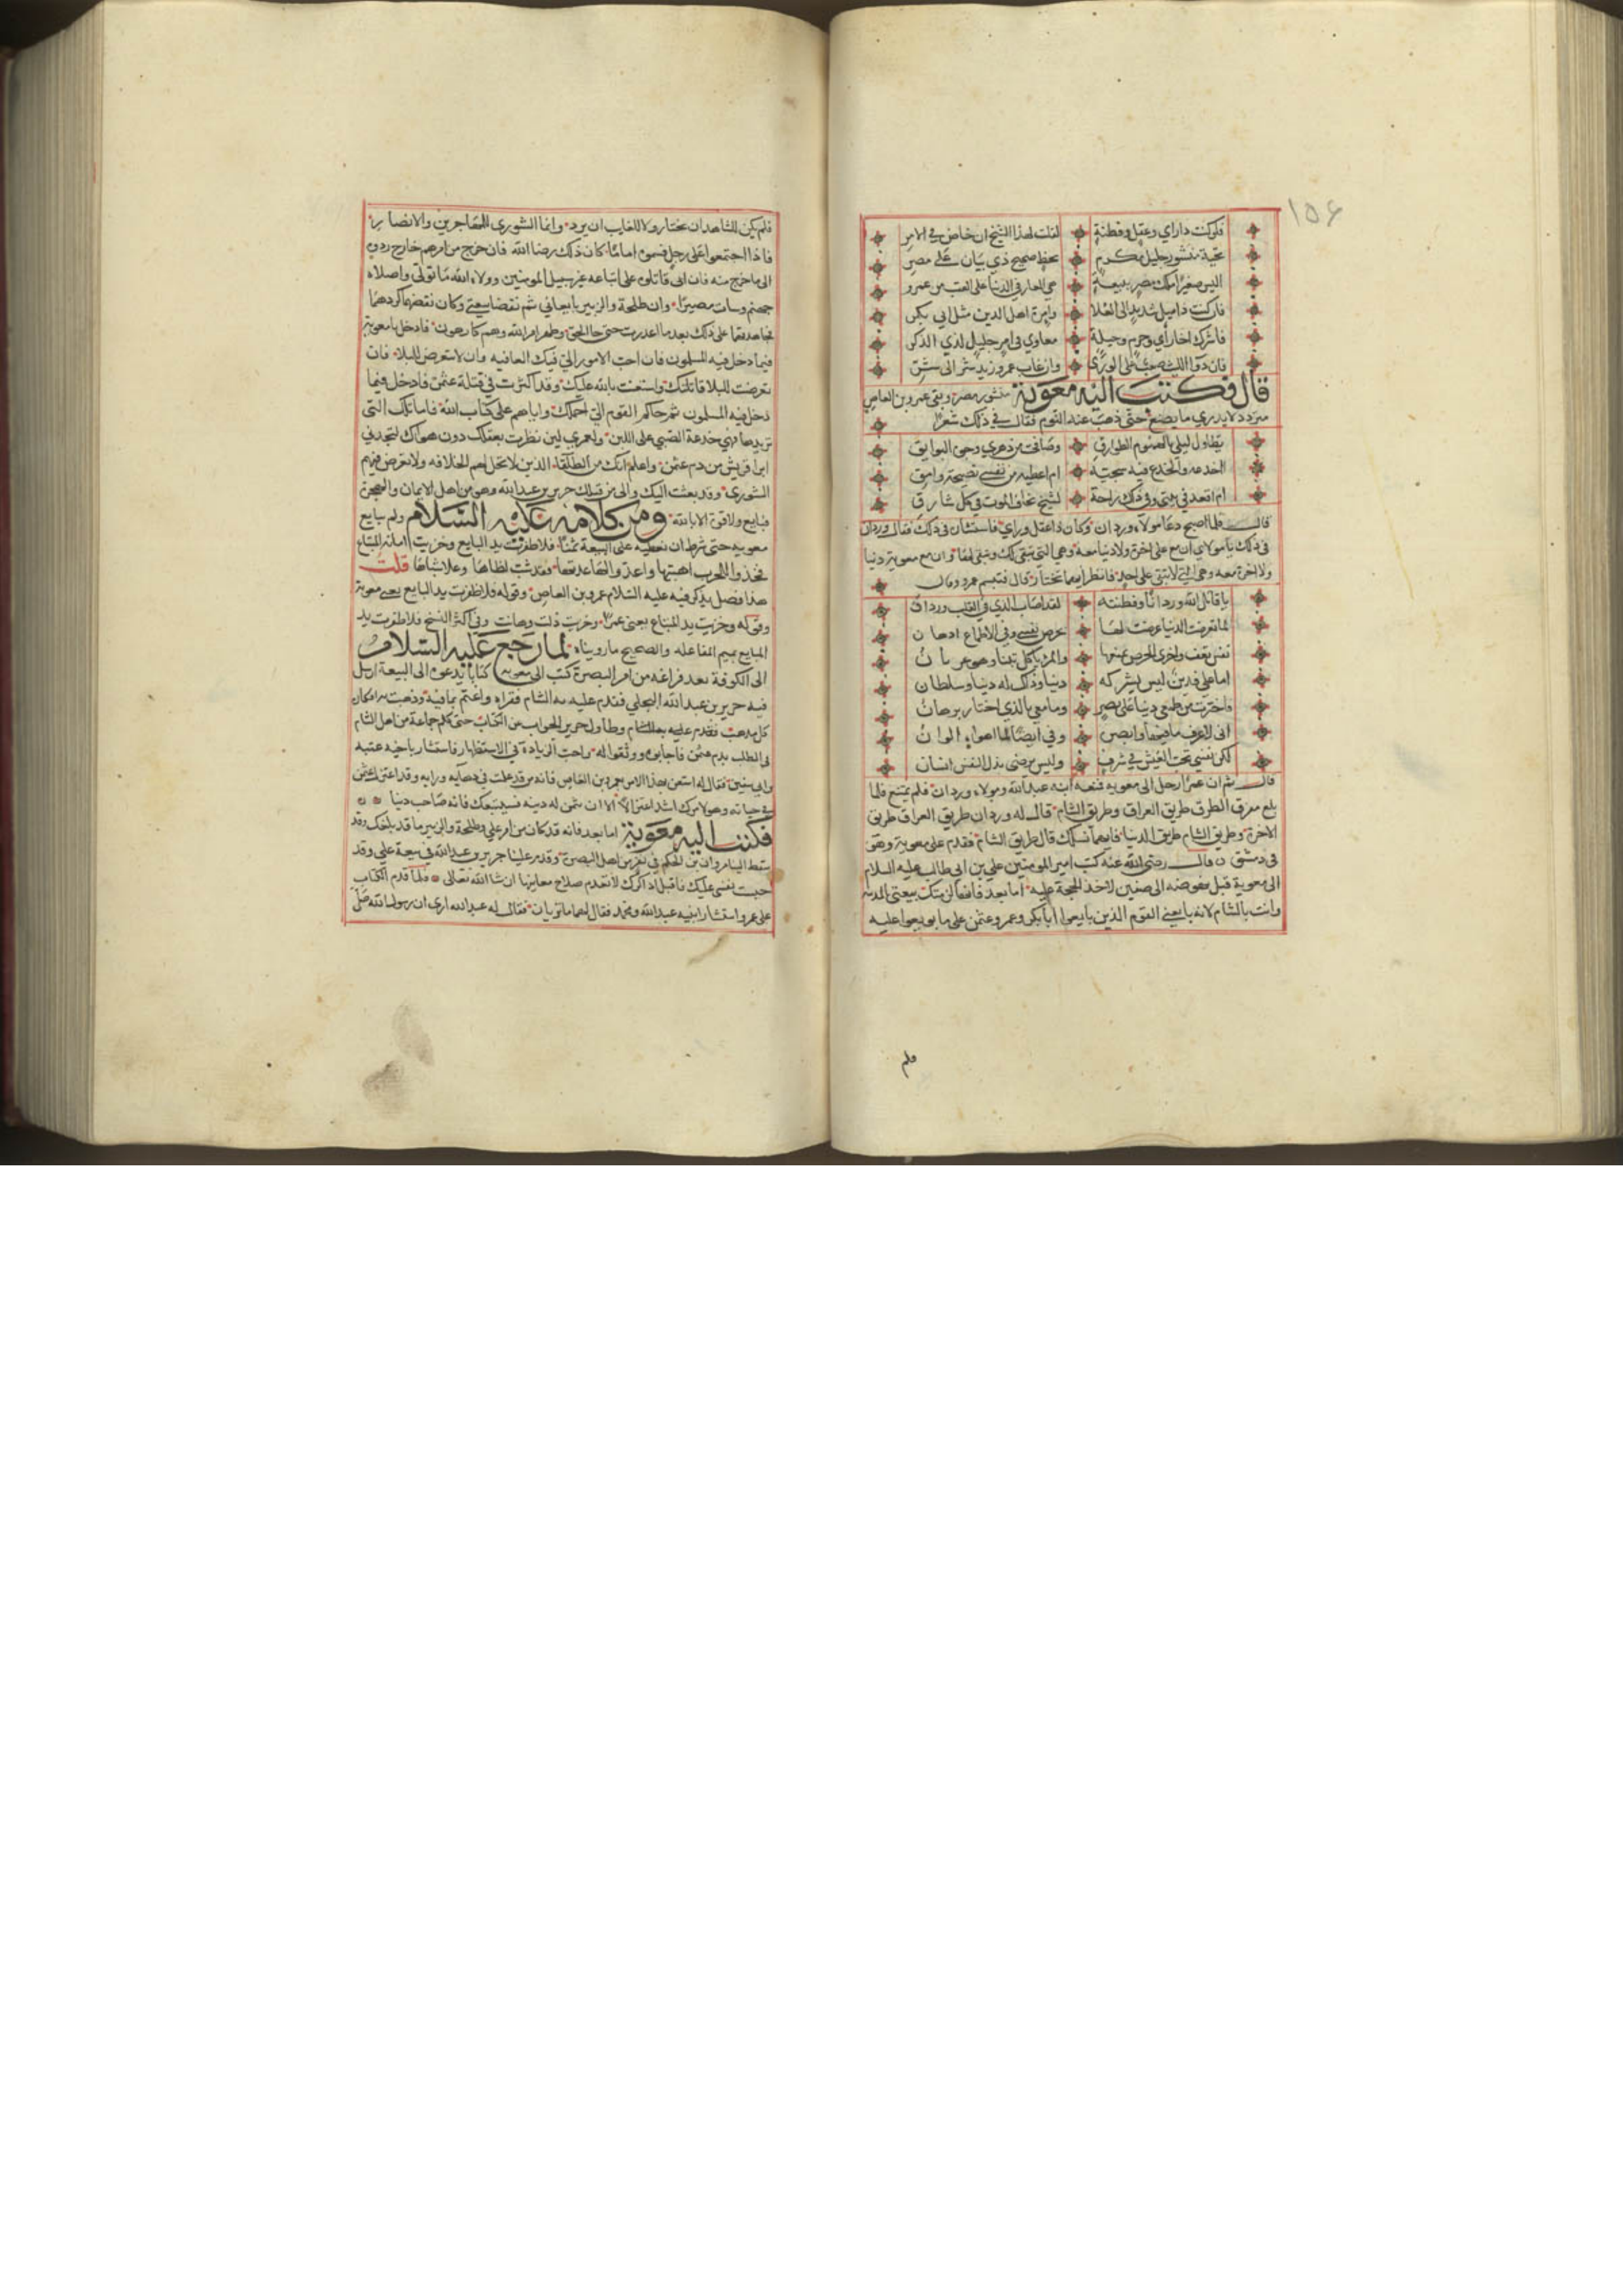 ١٥٦
فلو كنت ذا رأي وعقل وفطنة لقلت لهذا الشيخ ان خاض في الامر
تحية منشور جليل مكرم بخط صحيح ذي بيان على مصر
اليس صغيرا ملك مصر ببيعة هي العار في الدنيا على العقب من عمرو
فان كنت ذا ميل شديد الى العلا وامرة اهل الدين مثل ابي بكر
فاشرك اخا رأي وحزم وحيلة معاوي في امر جليل لذي الذكر
فان دوآ الليث صعب على الورى وان غاب عمرو زيد شر الى شر
قال فكتب اليه معوية منشور مصر وبقي عمرو بن العاص
متردد لا يدري ما يصنع حتى ذهب عنه النوم فقال في ذلك شعرا
تطاول ليلي بالهموم الطوارق وصافحت من دهري وجوه البوايق
اخدعه والخدع فيه سجية ام اعطيه من نفسي نصيحة وامق
ام اقعد في بيتي وفي ذلك راحة لشيخ يخاف الموت في كل شارق
قال فلما اصبح دعا مولاه وردان وكان ذا عقل وراي فاستشاره في ذلك فقال وردان
في ذلك يا مولاي ان مع علي اخرة ولا دنيا معه وهي التي تبقى لك وتبقى لها وان مع معوية دنيا
ولا اخرة معه وهي التي لا تبقى على احد فانظر ايهما تختار قال فتبسم عمرو وقال
يا قاتل الله وردانا وفطنته لقد اصاب الذي في القلب وردان
لما تعرضت الدنيا عرضت لها بحرص نفسي وفي الاطماع ادهان
نفس تعف واخرى الحرص يمنعها والمرء يأكل تبنا وهو عريان
اما علي فدين ليس يشركه دنيا وذاك له دنيا وسلطان
فاخترت من طمعي دنيا على بصر وما معي بالذي اختار برهان
اني لاعرف ما فيها وابصر وفي ايضا لما اهواه الوان
لكن نفسي تحب العيش في شرف وليس يرضى بذل النفس انسان
قال ثم ان عمرا رحل الى معويه فمنعه ابنه عبد الله ومولاه وردان فلم يمتنع فلما
بلغ مفرق الطرق طريق العراق وطريق الشام قال له وردان طريق العراق طريق
الاخرة وطريق الشام طريق الدنيا فايهما تسلك قال طريق الشام فقدم على معوية وهو
في دمشق قال رضي الله عنه كتب امير المومنين علي بن ابي طالب عليه السلام
الى معوية قبل نهوضه الى صفين لاخذ الحجة عليه اما بعد فانه لزمتك بيعتي بالمدينه
وانت بالشام لانه بايعني القوم الذين بايعوا ابا بكر وعمر وعثمن على ما بويعوا عليه
فلم
فلم يكن للشاهد ان يختار ولا للغايب ان يرد وانما الشورى للمهاجرين والانصار
فاذا اجتمعوا على رجل فسموه اماما كان ذلك رضا الله فان خرج من امرهم خارج ردوه
الى ما خرج منه فان ابى قاتلوه على اتباعه غير سبيل المومنين وولاه الله ما تولى واصلاه
جهنم وسات مصيرا وان طلحة والزبير بايعاني ثم نقضا بيعتي وكان نقضهما كردهما
فجاهدتهما على ذلك بعد ما اعذرت حتى جا الحق وظهر امر الله وهم كارهون فادخل يا معوية
فيما دخل فيه المسلمون فان احب الامور الي فيك العافيه وان لا تتعرض للبلا فان
تعرضت للبلا قاتلتك واستعنت بالله عليك وقد اكثرت في قتلة عثمن فادخل فيما
دخل فيه المسلمون ثم حاكم القوم الي احملك واياهم على كتاب الله فاما تلك التي
تريدها فهي خدعة الصبي على اللبن ولعمري لين نظرت بعقلك دون هواك لتجدني
ابرا قريش من دم عثمن واعلم انك من الطلقا الذين لا تحل لهم الخلافه ولا تعرض فيهم
الشورى وقد بعثت اليك والى من قبلك جرير بن عبد الله وهو من اهل الايمان والهجرة
فبايع ولا قوة الا بالله ومن كلامه عليه السلام ولم يبايع
معويه حتى شرط ان يعطيه على البيعة ثمنا فلا ظفرت يد البايع وخزيت امانة المبتاع
فخذوا للحرب اهبتها واعدوا لها عدتها فقد شب لظاها وعلا سناها قلت
هذا فصل يذكر فيه عليه السلام عمرو بن العاص وقوله فلا ظفرت يد البايع يعني معوية
وقوله وخزيت يد المبتاع يعني عمرا وخزيت ذلت وهانت وفي اكثر النسخ فلا ظفرت يد
المبايع بميم المفاعله والصحيح ما رويناه لما رجع عليه السلام
الى الكوفة بعد فراغه من امر البصرة كتب الى معويه كتابا يدعوه الى البيعة ارسل
فيه جرير بن عبد الله البجلي فقدم عليه به الشام فقراه واغتم بما فيه وذهبت به افكاره
كل مذهب وطاول جرير الجواب عن الكتاب حتى كلم جماعة من اهل الشام
في الطلب بدم عثمن فاجابوه ووثقوا له واحب الزيادة في الاستظهار فاستشار باخيه عتبه
بن ابي سفين فقال له استعن بهذا الامر بعمرو بن العاص فانه من قد علمت في دهايه ورايه وقد اعتزل عثمن
في حياته وهو لامرك اشد اعتزالا الا ان يثمن له دينه فسيبيعك فانه صاحب دنيا
فكتب اليه معوية اما بعد فانه قد كان من امر علي وطلحة والزبير ما قد بلغك وقد
سقط الينا مروان بن الحكم في نفر من اهل البصرة وقدم علينا جرير بن عبد الله في بيعة علي وقد
حبست نفسي عليك فاقبل اذاكرك لا تعدم صلاح مغبتها ان شا الله تعالى فلما قدم الكتاب
على عمرو استشار ابنيه عبد الله ومحمد فقال لهما ما تريان فقال له عبد الله ارى ان رسول الله صلى